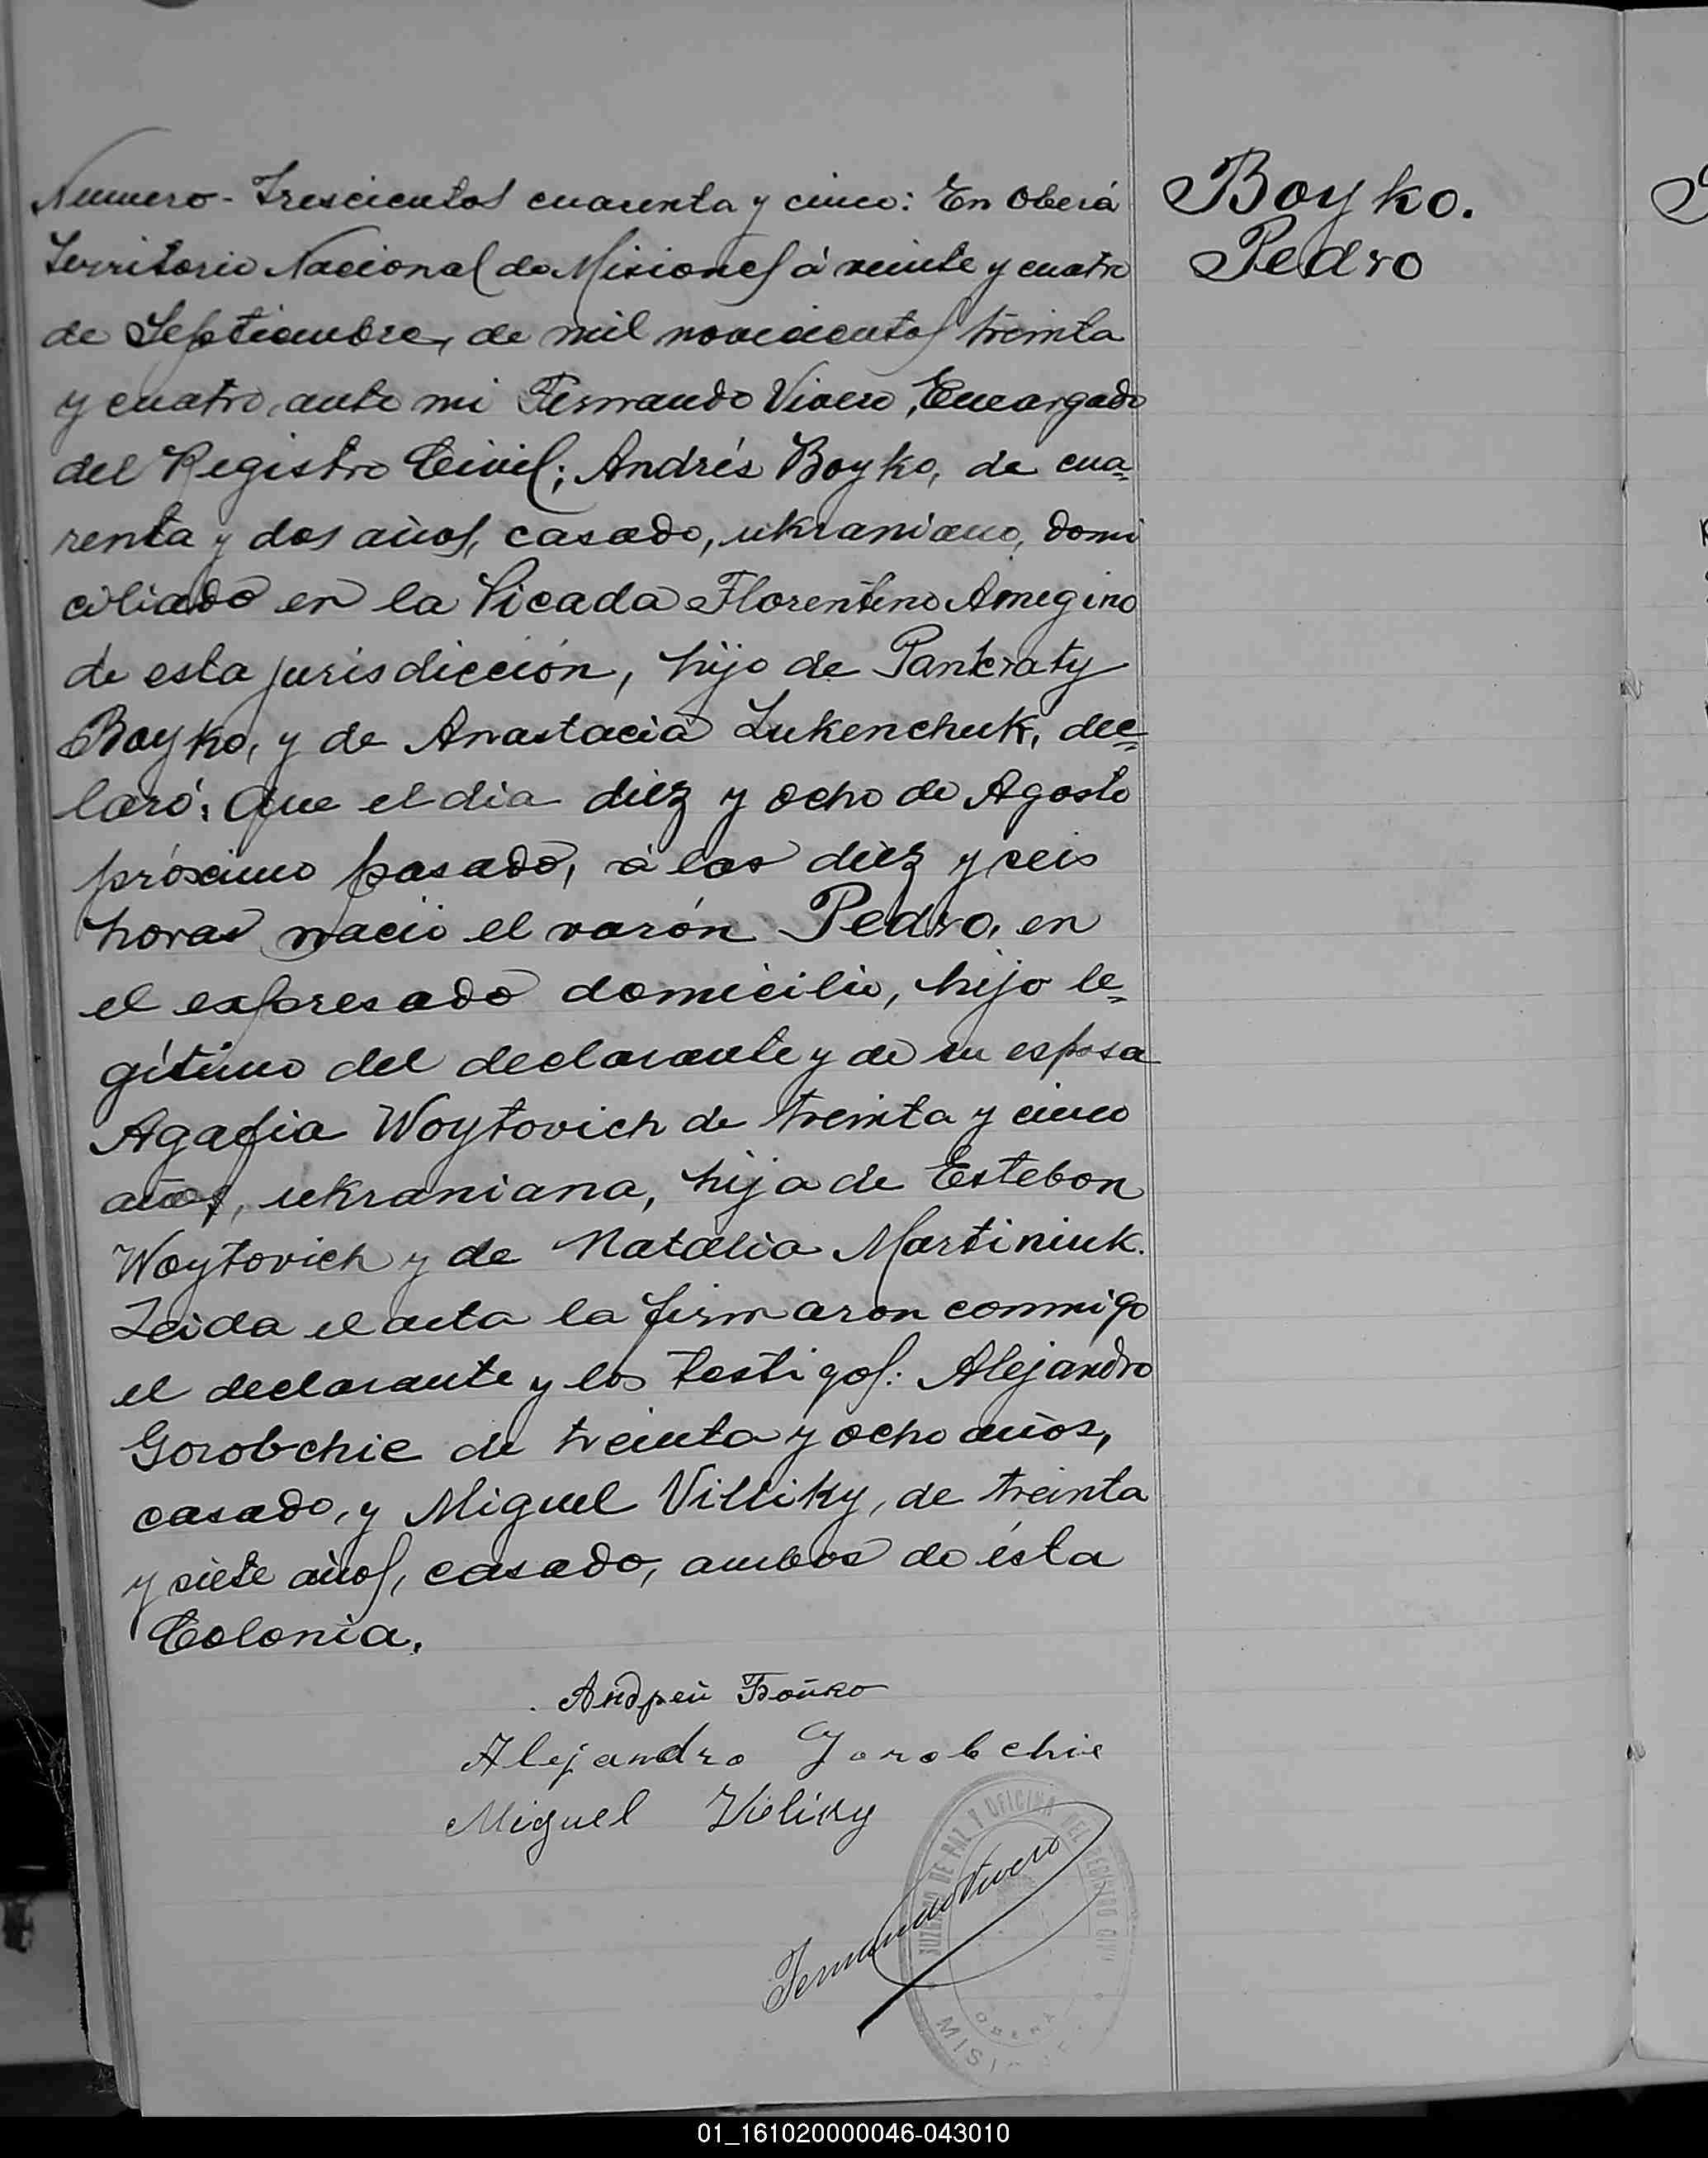 Numero - Trescientos cuarenta y cinco: En Oberá
Territorio Nacional de Misiones á veinte y cuatro
de Septiembre, de mil novecientos treinta
y cuatro, ante mi Fernando Vivero, Encargado
del Registro Civil; Andrés Boyko, de cua=
renta y dos años, casado, ukraniano, domi
ciliado en la Picada Florentino Amegino
de esta jurisdicción, hijo de Pankraty
Boyko, y de Anastacia Lukenchuk, dec=
laró: Que el dia diez y ocho de Agosto
próximo pasado, á las diez y seis
horas nació el varón Pedro, en
el expresado domicilio, hijo le=
gítimo del declarante y de su esposa
Agafia Woytovich de treinta y cinco
años, ukraniana, hija de Estebon
Woytovich y de Natalia Martiniuk.
Leida el acta la firmaron conmigo
el declarante y los testigos: Alejandro
Gorobchie de treinta y ocho años,
casado, y Miguel Villiky, de treinta
y siete años, casado, ambos de ésta
Colonia.
Boyko.
Pedro
Андрей Бойко
Alejandro Gorobchie
Miguel Vieliky
Fernando Vivero
JUZGADO DE PAZ Y OFICINA DEL REGISTRO CIVIL
OBERÁ
MISIONES
01_161020000046-043010